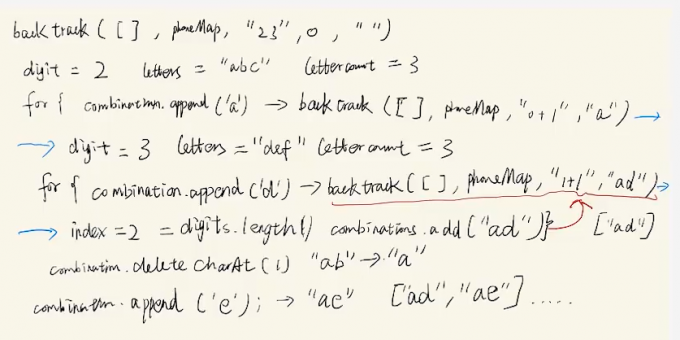 backtrack ( [ ] , phoneMap, "23" , 0 , " ")
digit = 2 letters = "abc" lettercount = 3
for { combination.append ('a') → backtrack ( [ ] , phoneMap, "0+1" , "a") →
→ digit = 3 letters = "def" lettercount = 3
for { combination.append ('d') → backtrack ( [ ] , phoneMap, "1+1" , "ad") →
→ index = 2 = digits.length() combinations.add ("ad") } ["ad"]
combination.delete CharAt (1) "ab" → "a"
combination.append ('e') ; → "ae" ["ad" , "ae"] .....